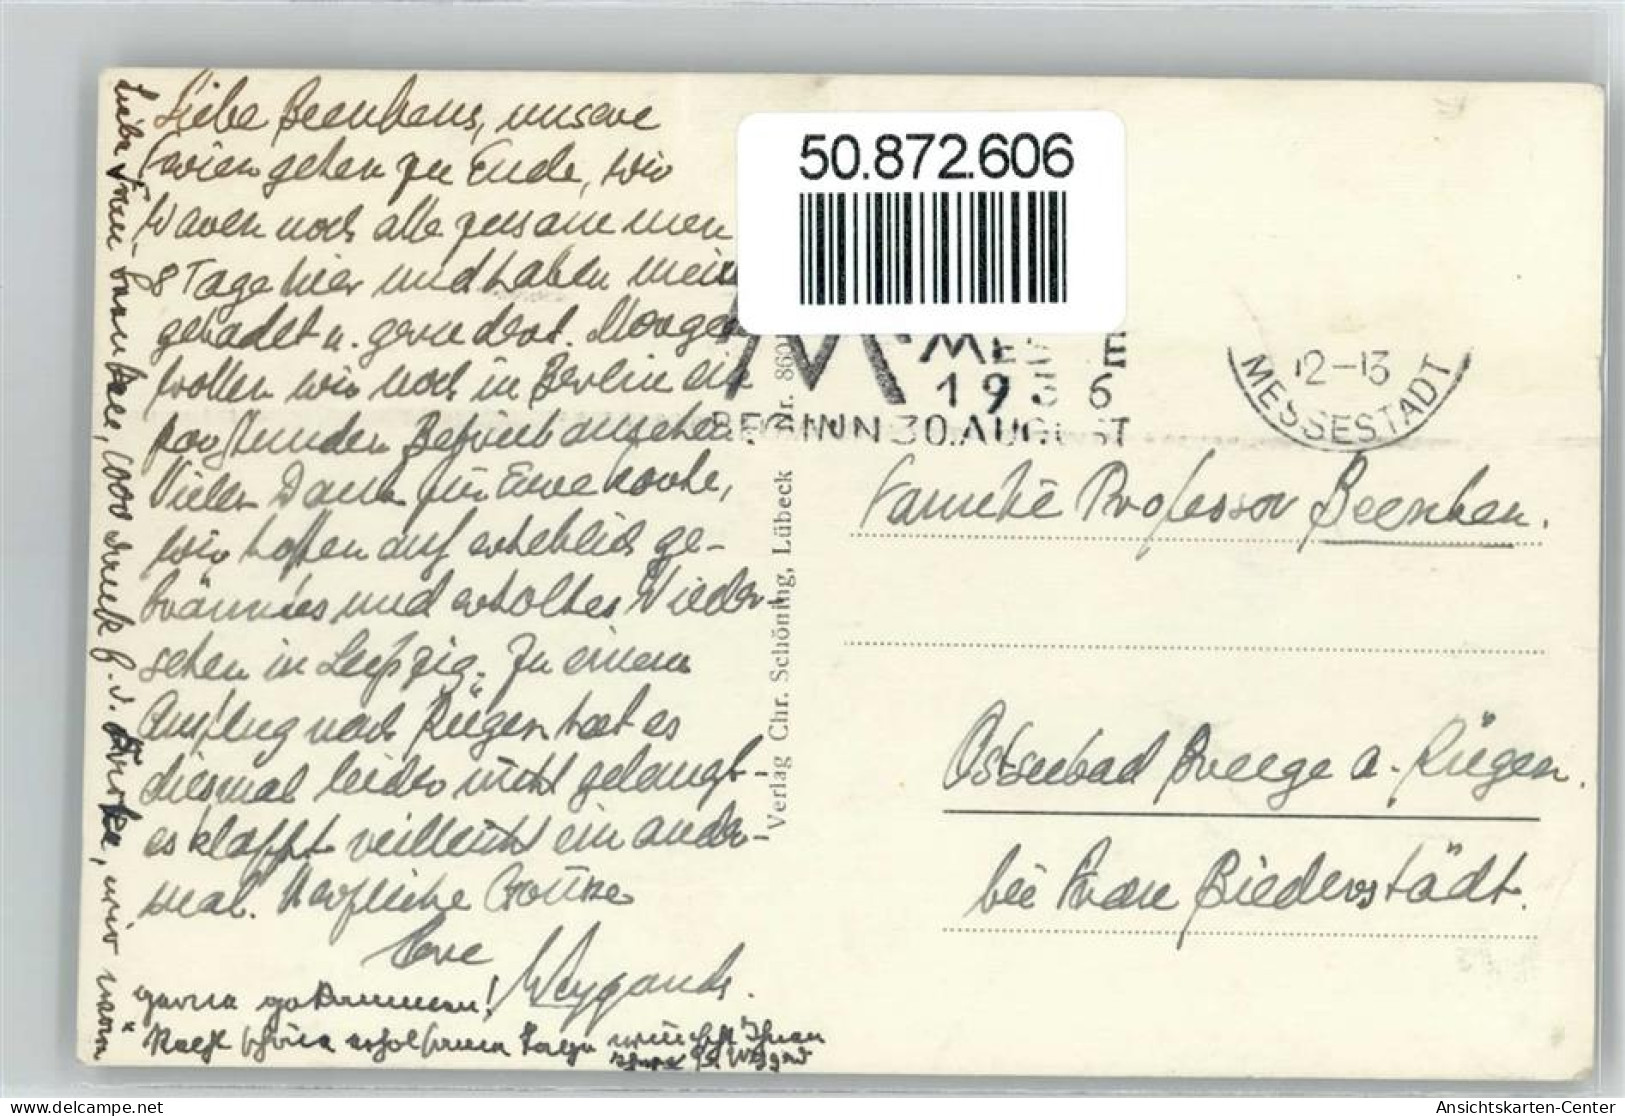 Liebe Beenkens, unsere
Ferien gehen zu Ende, wir
waren noch alle zusammen
8 Tage hier und haben
gebadet u. gerudert. Morgen
wollen wir noch in Berlin
Betrieb ansehen
Vielen Dank für Eure Karte,
wir hoffen auf erheblich ge-
bräuntes und erholtes Wieder-
sehen in Leipzig. Zu einem
Ausflug nach Rügen hat es
diesmal leider nicht gelangt
es klappt vielleicht ein ander-
mal. Herzliche Grüsse
Eure Weygands.
Liebe Frau wir wären
gerne gekommen!
Recht schöne erholsame Tage wünscht Ihnen
50.872.606
MESSE
1936
BEGINN 30. AUGUST
12-13
MESSESTADT
Verlag Chr. Schöning, Lübeck Nr. 860
Familie Professor Beenken.
Ostseebad Breege a. Rügen.
bei Frau Biederstädt.
Ansichtskarten-Center